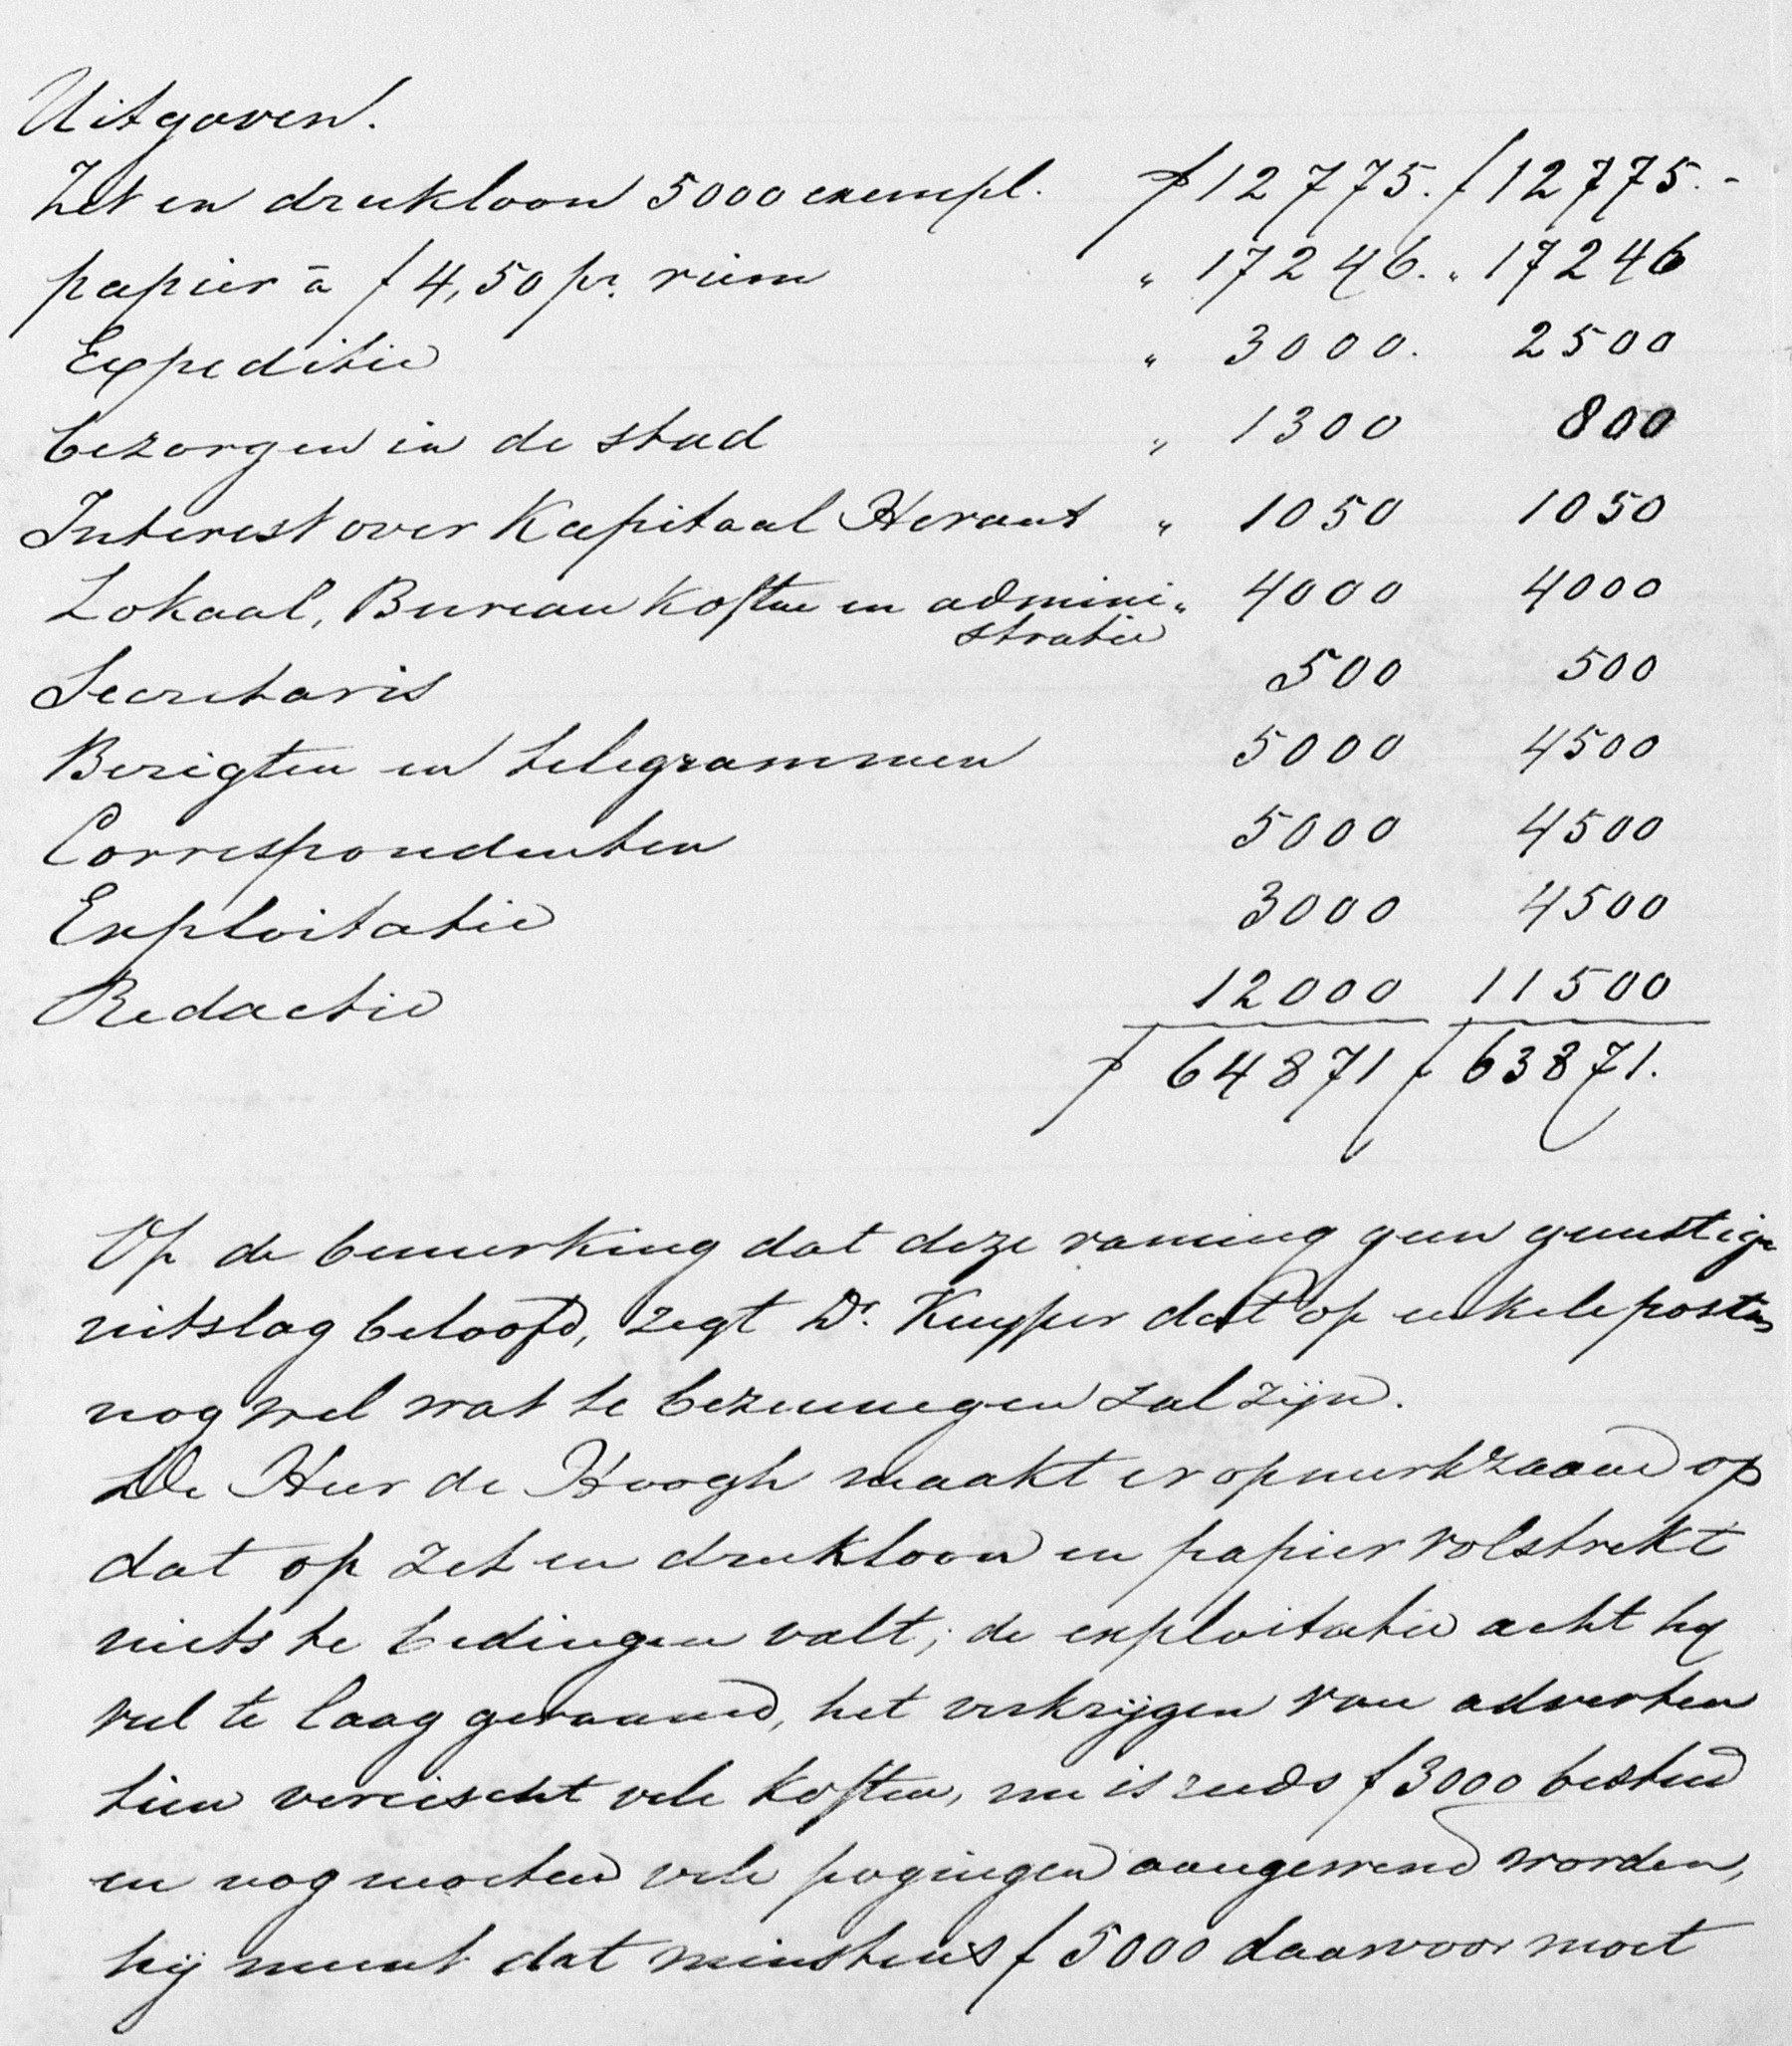 Uitgaven.
Zet en drukloon 5000 exempl. f 12775. f 12775.-
papier à f 4,50 pr. riem " 17246. " 17246
Expeditie " 3000. 2500
bezorgen in de stad " 1300 800
Interest over Kapitaal Heraut " 1050 1050
Lokaal, Bureau kosten en admini " 4000 4000
stratie
Secretaris 500 500
Berigten en telegrammen 5000 4500
Correspondenten 5000 4500
Exploitatie 3000 4500
Redactie 12000 11500
f 64871 f 63871.
Op de bemerking dat deze raming geen gunstige
uitslag beloofd, zegt Dr. Kuyper dat op enkele posten
nog wel wat te bezuinigen zal zijn.
De Heer de Hoogh maakt er opmerkzaam op
dat op zet en drukloon en papier volstrekt
niets te bedingen valt; de exploitatie acht hy
veel te laag geraamd, het verkrijgen van adverten
tien vereischt vele kosten, nu is reeds f 3000 besteed
en nog moeten vele pogingen aangewend worden,
hij meent dat minstens f 5000 daarvoor moet